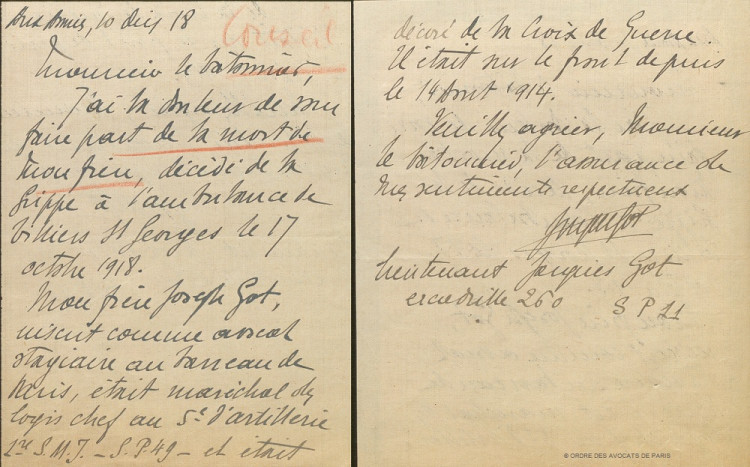 Aux Armées, 10 déc 18
Conseil
Monsieur le bâtonnier,
J'ai la douleur de vous
faire part de la mort de
mon frère, décédé de la
grippe à l'ambulance de
Villiers St Georges le 17
octobre 1918.
Mon frère Joseph Got,
inscrit comme avocat
stagiaire au barreau de
Paris, était maréchal des
logis chef au 5e d'artillerie
S.M.I. - S.P. 49 - et était
décoré de la Croix de Guerre.
Il était sur le front depuis
le 14 Aout 1914.
Veuillez agréer, Monsieur
le bâtonnier, l'assurance de
mes sentiments respectueux
Jacques Got
lieutenant Jacques Got
escadrille 260 S P 21
© ORDRE DES AVOCATS DE PARIS